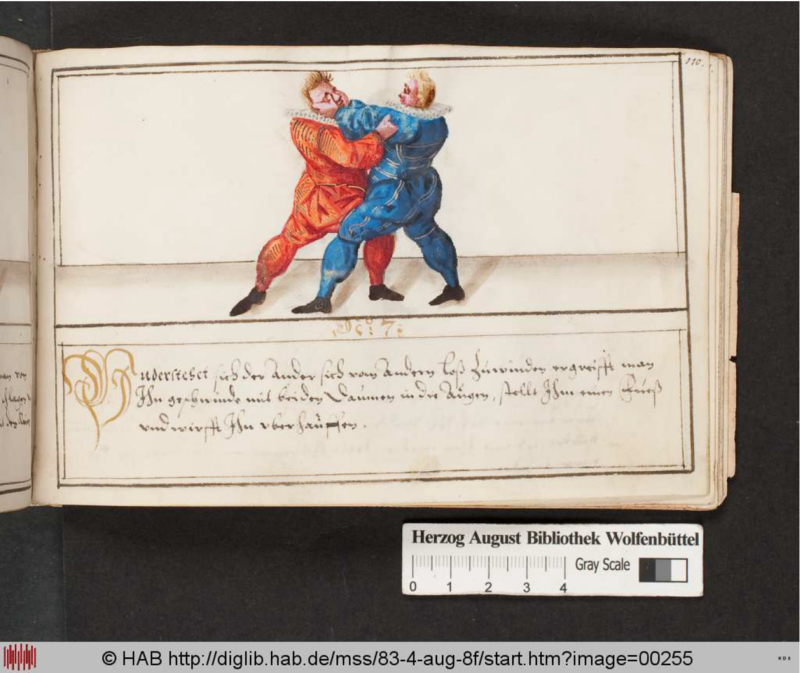 110.
7:
Vnderstehet sich der Ander sich vom Andern loß zuwinden ergreifft man
Ihn geschwinde mit beiden Daumen in die Augen, stellt Ihm einen
vnd wirfft Ihn vberhauffen.
Herzog August Bibliothek Wolfenbüttel
Gray Scale
0 1 2 3 4
© HAB http://diglib.hab.de/mss/83-4-aug-8f/start.htm?image=00255